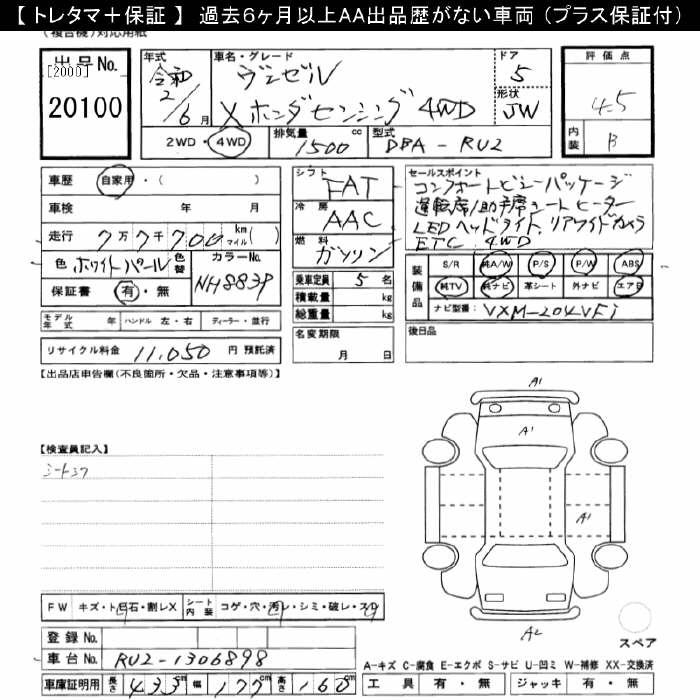 【トレタマ＋保証】 過去6ヶ月以上AA出品歴がない車両 (プラス保証付)
(複合機)対応用紙
出品No.
[2000]
20100
年式
令和
2/6月
車名・グレード
ヴェゼル
X ホンダセンシング 4WD
ドア
5
形状
JW
評価点
4.5
内装
B
2WD・4WD
排気量
1500 cc
型式
DBA-RU2
車歴 自家用・( )
車検 年 月
走行 7万7千700 km マイル( )
色 ホワイトパール 色替
カラーNo.
NH883P
保証書 有・無
モデル年式 年 ハンドル 左・右 ディーラー・並行
リサイクル料金 11,050 円 預託済
シフト
FAT
冷房
AAC
燃料
ガソリン
乗車定員 5 名
積載量 kg
総重量 kg
名変期限
月 日
セールスポイント
コンフォートビューパッケージ
運転席/助手席シートヒーター
LEDヘッドライト、リアワイドカメラ
ETC 4WD
装備品
S/R 純A/W P/S P/W ABS
純TV 純ナビ 革シート 外ナビ エアB
ナビ型番: VXM-204VFi
後日品
【出品店申告欄(不良箇所・欠品・注意事項等)】
【検査員記入】
シートスワ
A1
A1
A1
A2
スペア
FW キズ・ト石・割レX
シート内装 コゲ・穴・汚レ・シミ・破レ・スワ
登録No.
車台No. RU2-1306898
車庫証明用 長さ 433cm 幅 177cm 高さ 160cm
A-キズ C-腐食 E-エクボ S-サビ U-凹ミ W-補修 XX-交換済
工具 有・無 ジャッキ 有・無